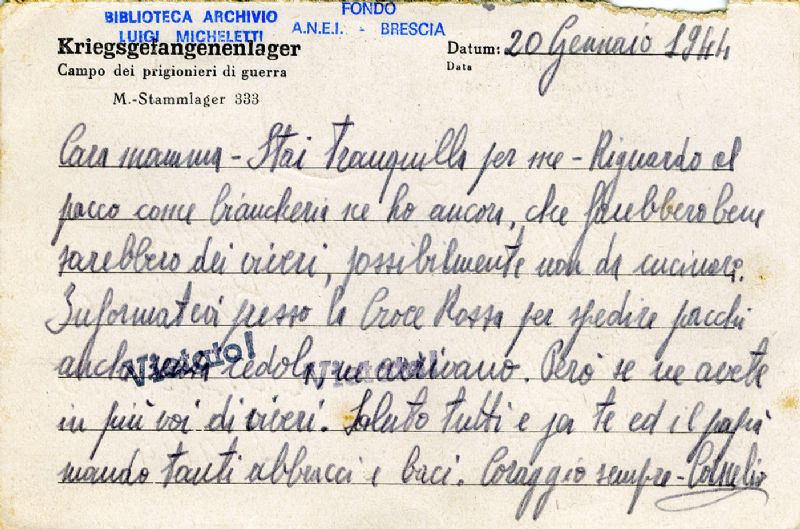 BIBLIOTECA ARCHIVIO
LUIGI MICHELETTI
FONDO
A.N.E.I. - BRESCIA
Kriegsgefangenenlager
Campo dei prigionieri di guerra
M.-Stammlager 333
Datum: 20 Gennaio 1944
Data
Cara mamma - Stai tranquilla per me - Riguardo al
pacco come biancheria ne ho ancora, che farebbero bene
sarebbero dei viveri, possibilmente non da cucinare.
Informatevi presso la Croce Rossa per spedire pacchi
anche senza cedola, ne arrivano. Però se ne avete
Vietato!
in più voi di viveri. Saluto tutti e per te ed il papà
mando tanti abbracci e baci. Coraggio sempre - Cornelio